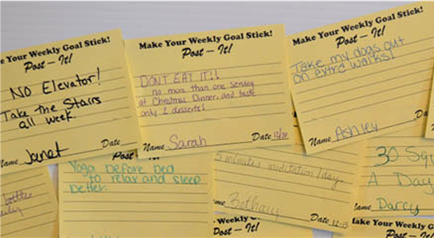 ke Your Weekly Goal Stick!
Post – It!
NO Elevator!
Take the Stairs
all week.
Name Janet Date
Make Your Weekly Goal Stick!
Post – It!
DON'T EAT IT!!
no more than one serving
at Christmas Dinner, and taste
only 2 desserts!
Name Sarah Date 12/12
Make Your Weekly Goal Stick!
Post – It!
Take my dogs out
on extra walks!
Name Ashley Date
Yoga before bed
to relax and sleep
better.
5 minutes meditation/day
Name Bethany Date
30 Squ
A Day
Darcy
Name
Make Your Weekly Goal
Post – It!
Make Your Weekly
Post